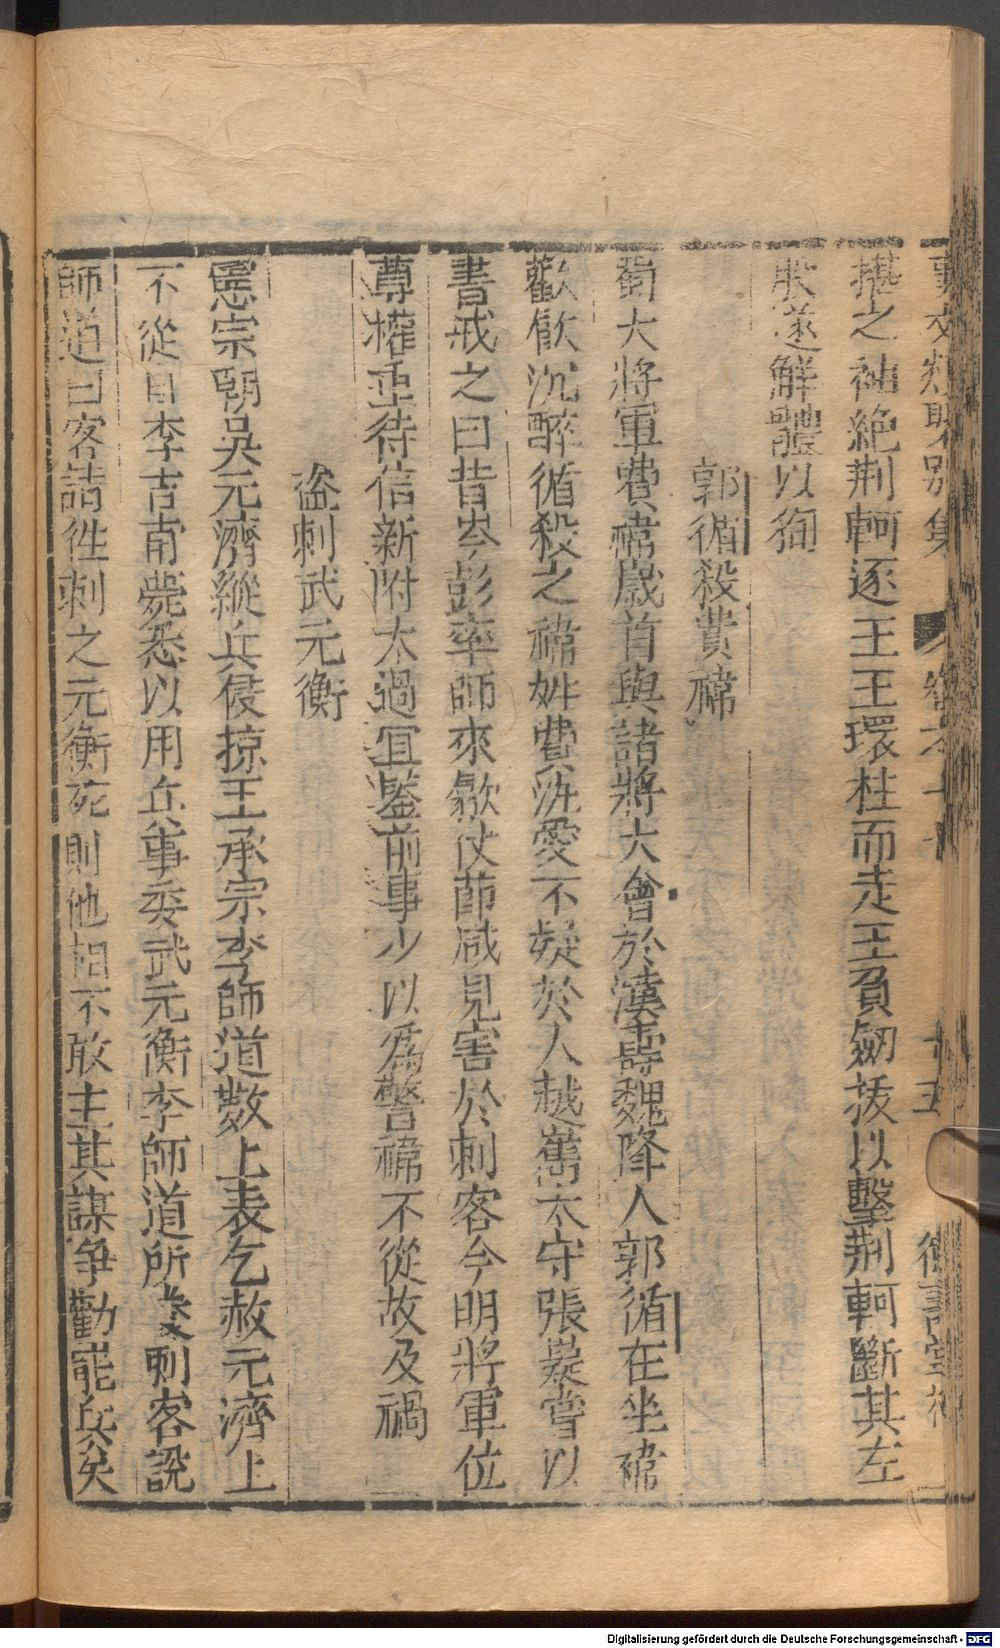 事文類聚別集 卷之十七 十五 德壽堂梓
揕之袖絶荆軻逐王王環柱而走王負劒拔以擊荆軻斷其左
股遂解體以狥
郭循殺費禕
蜀大將軍費禕歲首與諸將大會於漢壽魏降人郭循在坐禕
歡飮沉醉循殺之禕姓費汎愛不疑於人越嶲太守張嶷嘗以
書戒之曰昔岑彭率師來歙仗莭咸見害於刺客今明將軍位
尊權重待信新附太過宜鑒前事少以爲警禕不從故及禍
盗刺武元衡
憲宗朝吳元濟縱兵侵掠王承宗李師道數上表乞赦元濟上
不從自李吉甫薨悉以用兵事委武元衡李師道所養刺客説
師道曰客請徃刺之元衡死則他相不敢主其謀爭勸罷兵矣
Digitalisierung gefördert durch die Deutsche Forschungsgemeinschaft - DFG